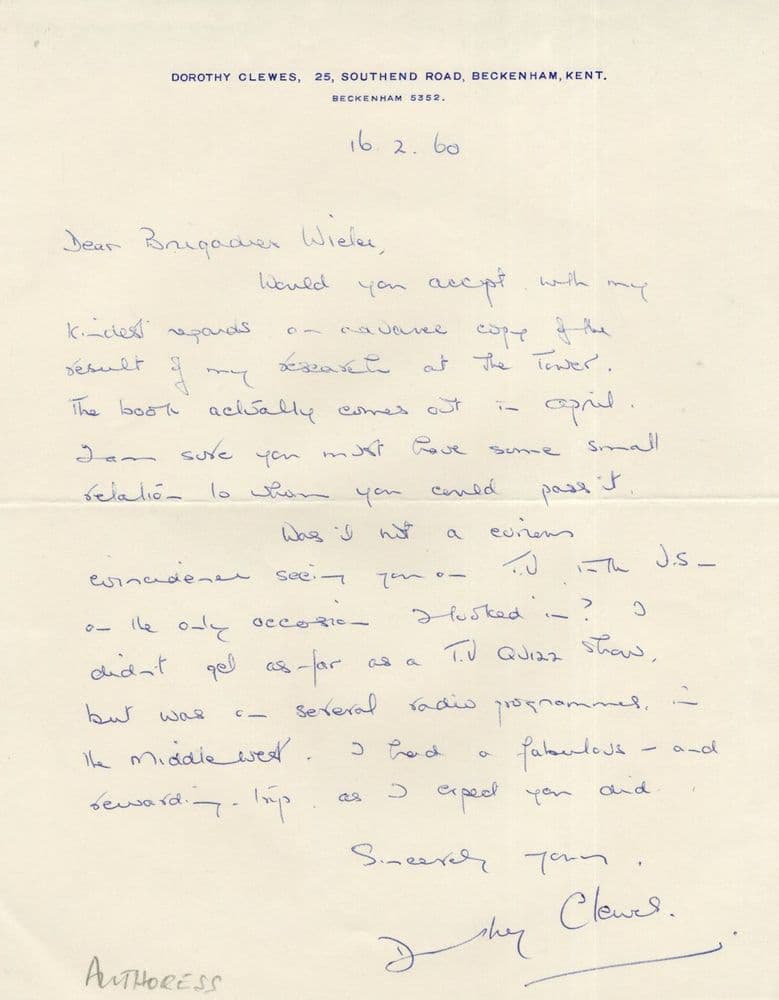 DOROTHY CLEWES, 25, SOUTHEND ROAD, BECKENHAM, KENT.
BECKENHAM 5352.
16. 2. 60
Dear Brigadier Wieler,
Would you accept with my
kindest regards an advance copy of the
result of my research at the Tower.
The book actually comes out in April.
I am sure you must have some small
relation to whom you could pass it.
Was it not a curious
coincidence seeing you on T.V in the U.S –
on the only occasion I looked in? I
didn't get as far as a T.V QUIZZ show,
but was on several radio programmes, in
the Middle west. I had a fabulous – and
rewarding – trip as I expect you did.
Sincerely yours.
Dorothy Clewes.
AUTHORESS